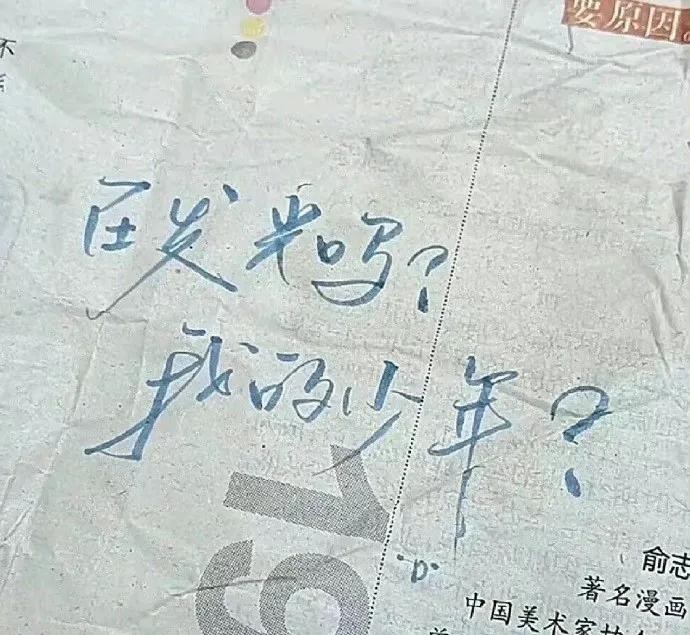 不
要原因。
在发光吗?
我的少年?
19
·D·
俞志
著名漫画
中国美术家